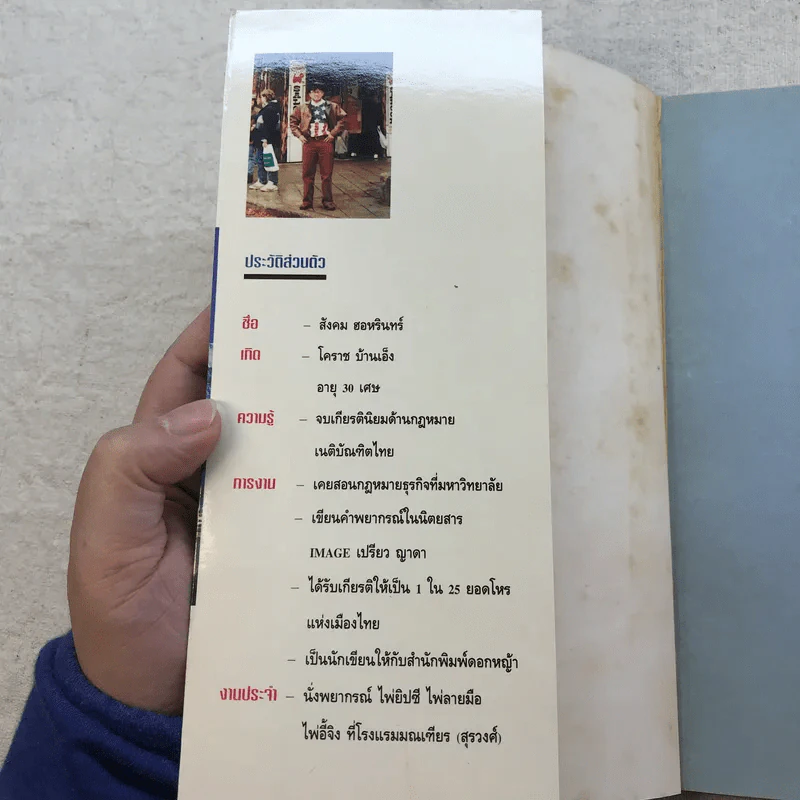 ประวัติส่วนตัว
ชื่อ – สังคม ฮอหรินทร์
เกิด – โคราช บ้านเอ็ง
อายุ 30 เศษ
ความรู้ – จบเกียรตินิยมด้านกฎหมาย
เนติบัณฑิตไทย
การงาน – เคยสอนกฎหมายธุรกิจที่มหาวิทยาลัย
– เขียนคำพยากรณ์ในนิตยสาร
IMAGE เปรียว ญาดา
– ได้รับเกียรติให้เป็น 1 ใน 25 ยอดโหร
แห่งเมืองไทย
– เป็นนักเขียนให้กับสำนักพิมพ์ดอกหญ้า
งานประจำ – นั่งพยากรณ์ ไพ่ยิปซี ไพ่ลายมือ
ไพ่อี้จิง ที่โรงแรมมณเฑียร (สุรวงศ์)